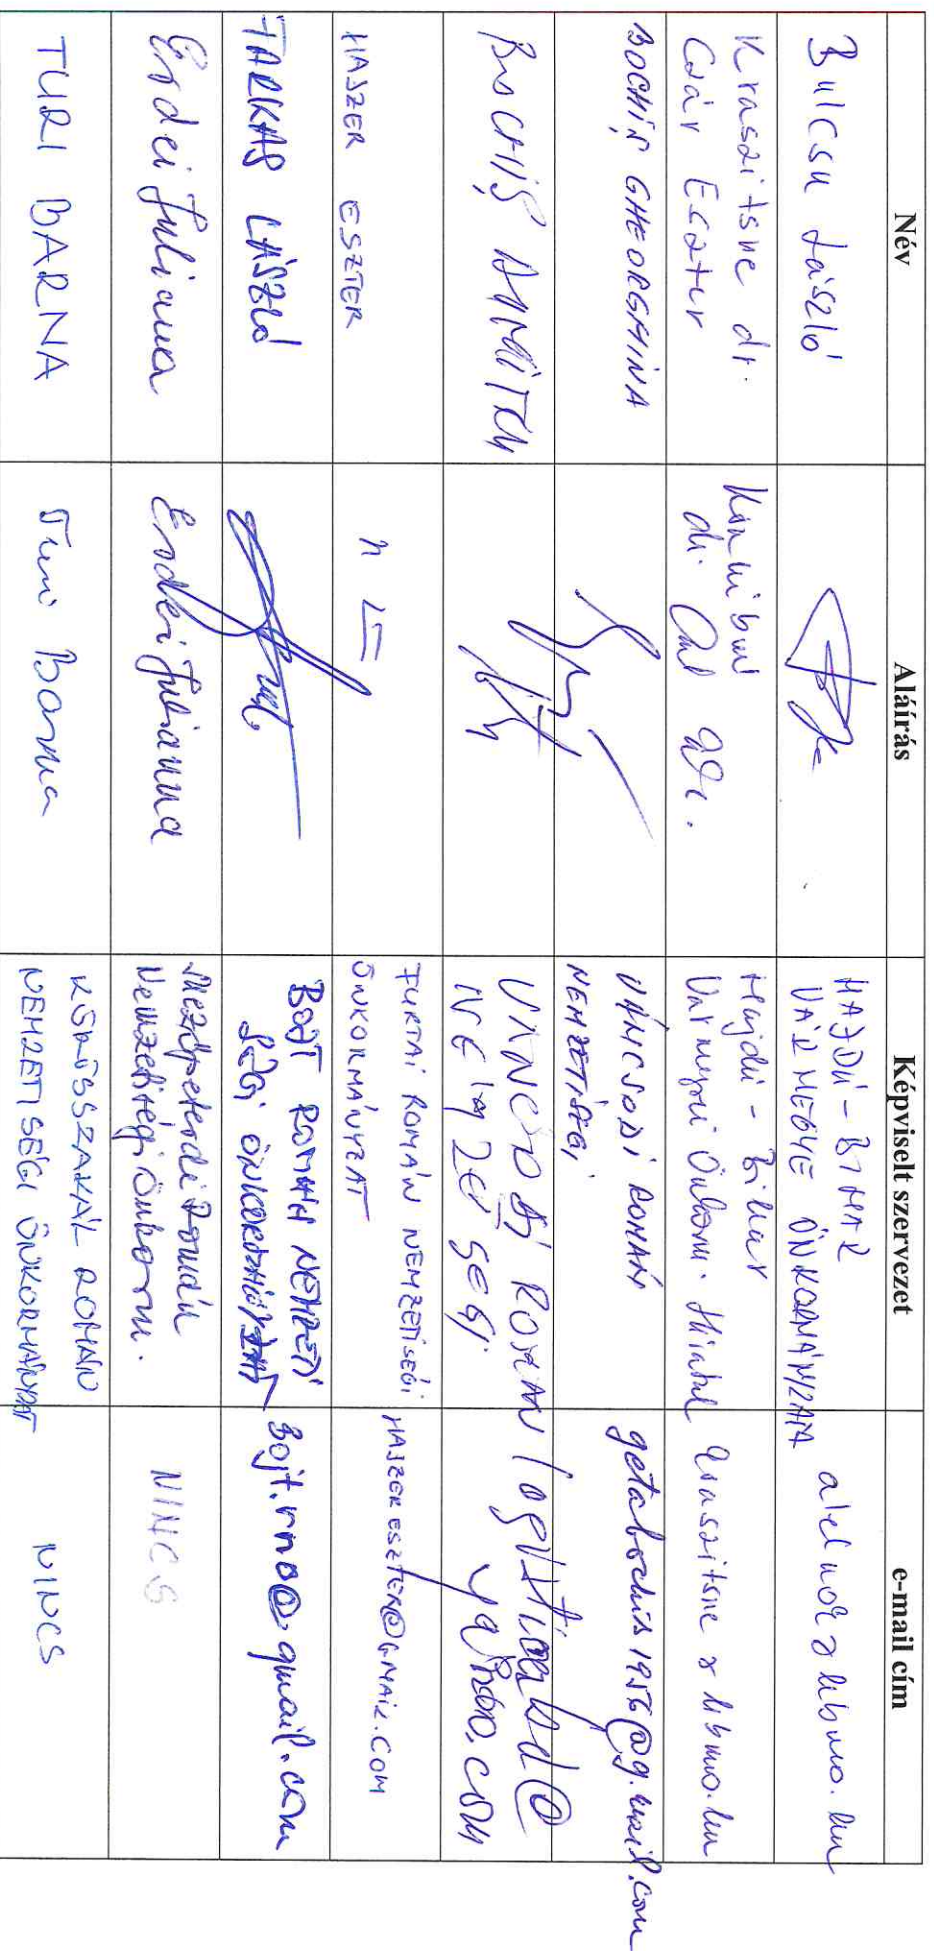 Név Aláírás Képviselt szervezet e-mail cím
Bulcsu László
HAJDÚ-BIHAR
VÁRMEGYE ÖNKORMÁNYZATA
alelnok@hbmo.hu
Krasznitsne dr.
Czár Eszter
dr.
Hajdú-Bihar
Vármegyei Önkorm. Hivatal
hbmo.hu
BOCHIȘ GHEORGHINA
VÁNCSODI ROMÁN
NEMZETISÉGI
getabochis1956@gmail.com
BOCHIȘ
VÁNCSODI ROMÁN
yahoo.com
HAJZER ESZTER
FURTAI ROMÁN NEMZETISÉGI
ÖNKORMÁNYZAT
HAJZERESZTER@GMAIL.COM
FARKAS LÁSZLÓ
BOJT ROMÁN NEMZETI
SÉGI ÖNKORMÁNYZAT
Bojt.rno@gmail.com
Erdei Julianna
Erdei Julianna
Mezőpeterdi Román
Nemzetiségi Önkorm.
NINCS
TURI BARNA
Turi Barna
KÖRÖSSZAKÁL ROMÁN
NEMZETISÉGI ÖNKORMÁNYZAT
NINCS